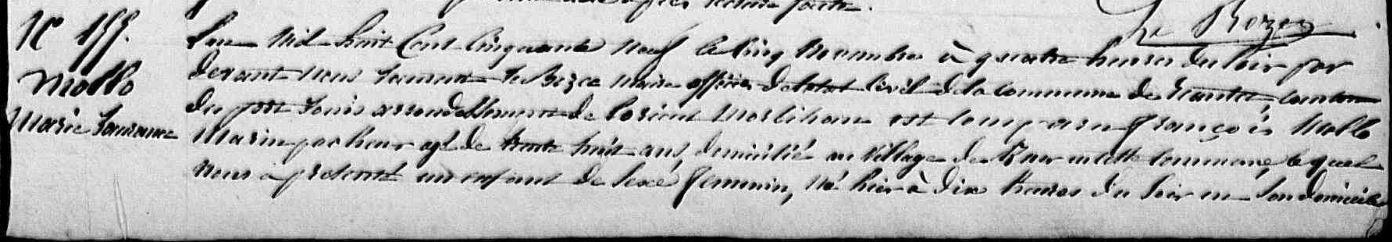 après lecture faite.
Le Bozec
Nº 155.
Mollo
Marie Laurence
L'an Mil huit Cent Cinquante Neuf le Cinq Novembre à quatre heures du soir par
devant nous Laurent Le Bozec Maire officier de l'état Civil de la commune de Plantec, canton
du port Louis arrondissement de Lorient Morbihan est comparu françois Mollo
Marin pecheur agé de trente huit ans, domicilié au village de en cette commune, lequel
nous a présenté un enfant de sexe femminin, né hier à dix heures du soir en son domicile